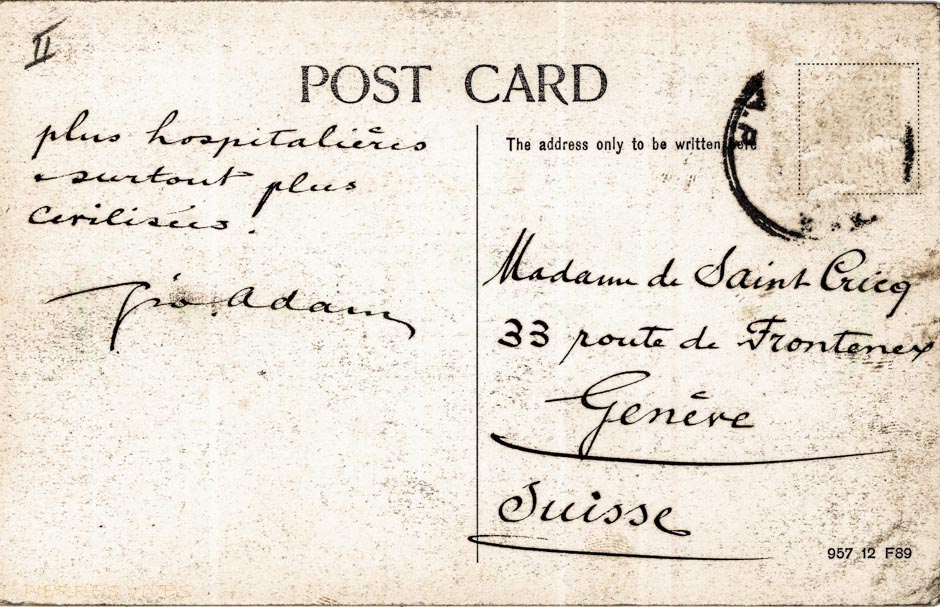 II
POST CARD
plus hospitalières
surtout plus
civilisées.
The address only to be written here
Madame de Saint Cricq
33 route de Frontenex
Genève
Suisse
Adam
957 12 F89